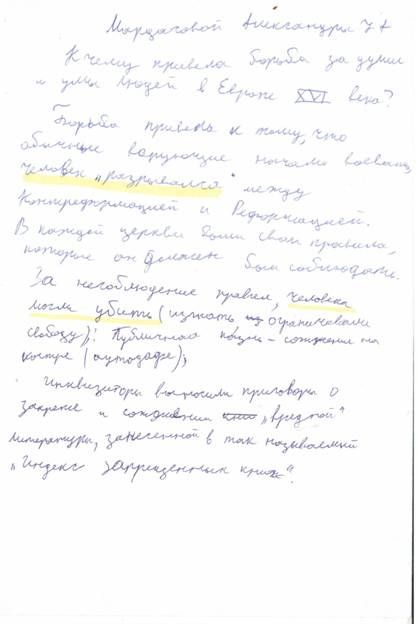 Мордасовой Александры 7 А
К чему привела борьба за души
и умы людей в Европе XVI века?
Борьба привела к тому, что
обычные верующие начали воевать,
человек „разрывался" между
Контрреформацией и Реформацией.
В каждой церкви были свои правила,
которые он должен был соблюдать.
За несоблюдение правил, человека
могли убить (изгнать ограничивали
свободу): Публичная казнь – сожжение на
костре (аутодафе);
Инквизиторы выносили приговоры о
запрете и сожжении „вредной"
литературы, занесенной в так называемый
„Индекс запрещенных книг".